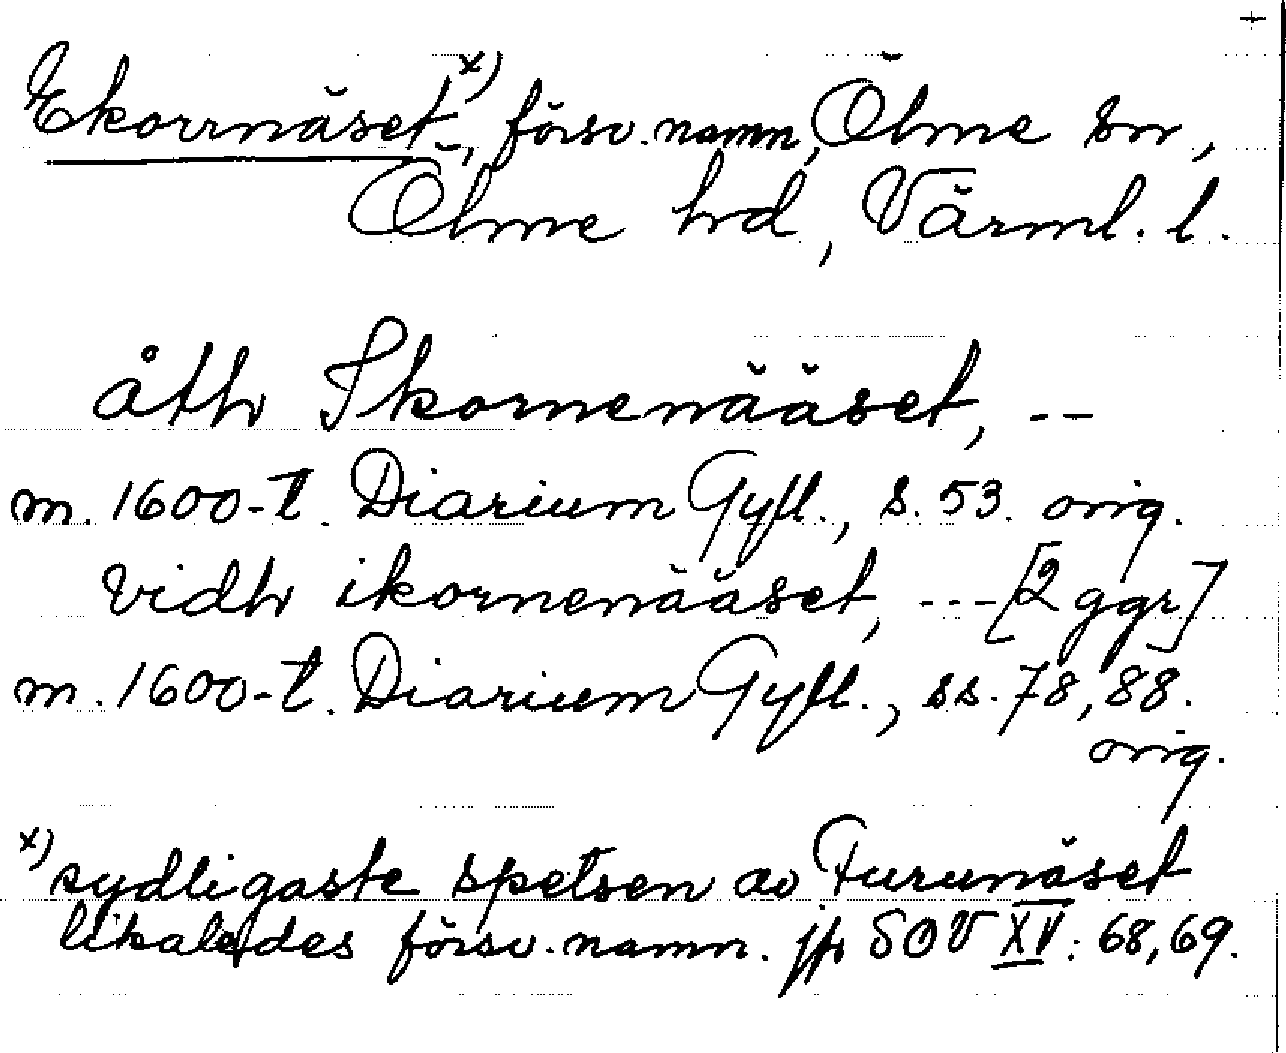 +
Ekorrnäset x), försv. namn, Ölme sn,
Ölme hd, Värml. l.
åth Ikornenääset, --
m. 1600-t. Diarium Gyll., s. 53. orig.
vidh ikornenääset, --- [2 ggr]
m. 1600-t. Diarium Gyll., ss. 78, 88.
orig.
x) sydligaste spetsen av Furunäset
likaledes försv. namn. jfr SOV XV: 68, 69.